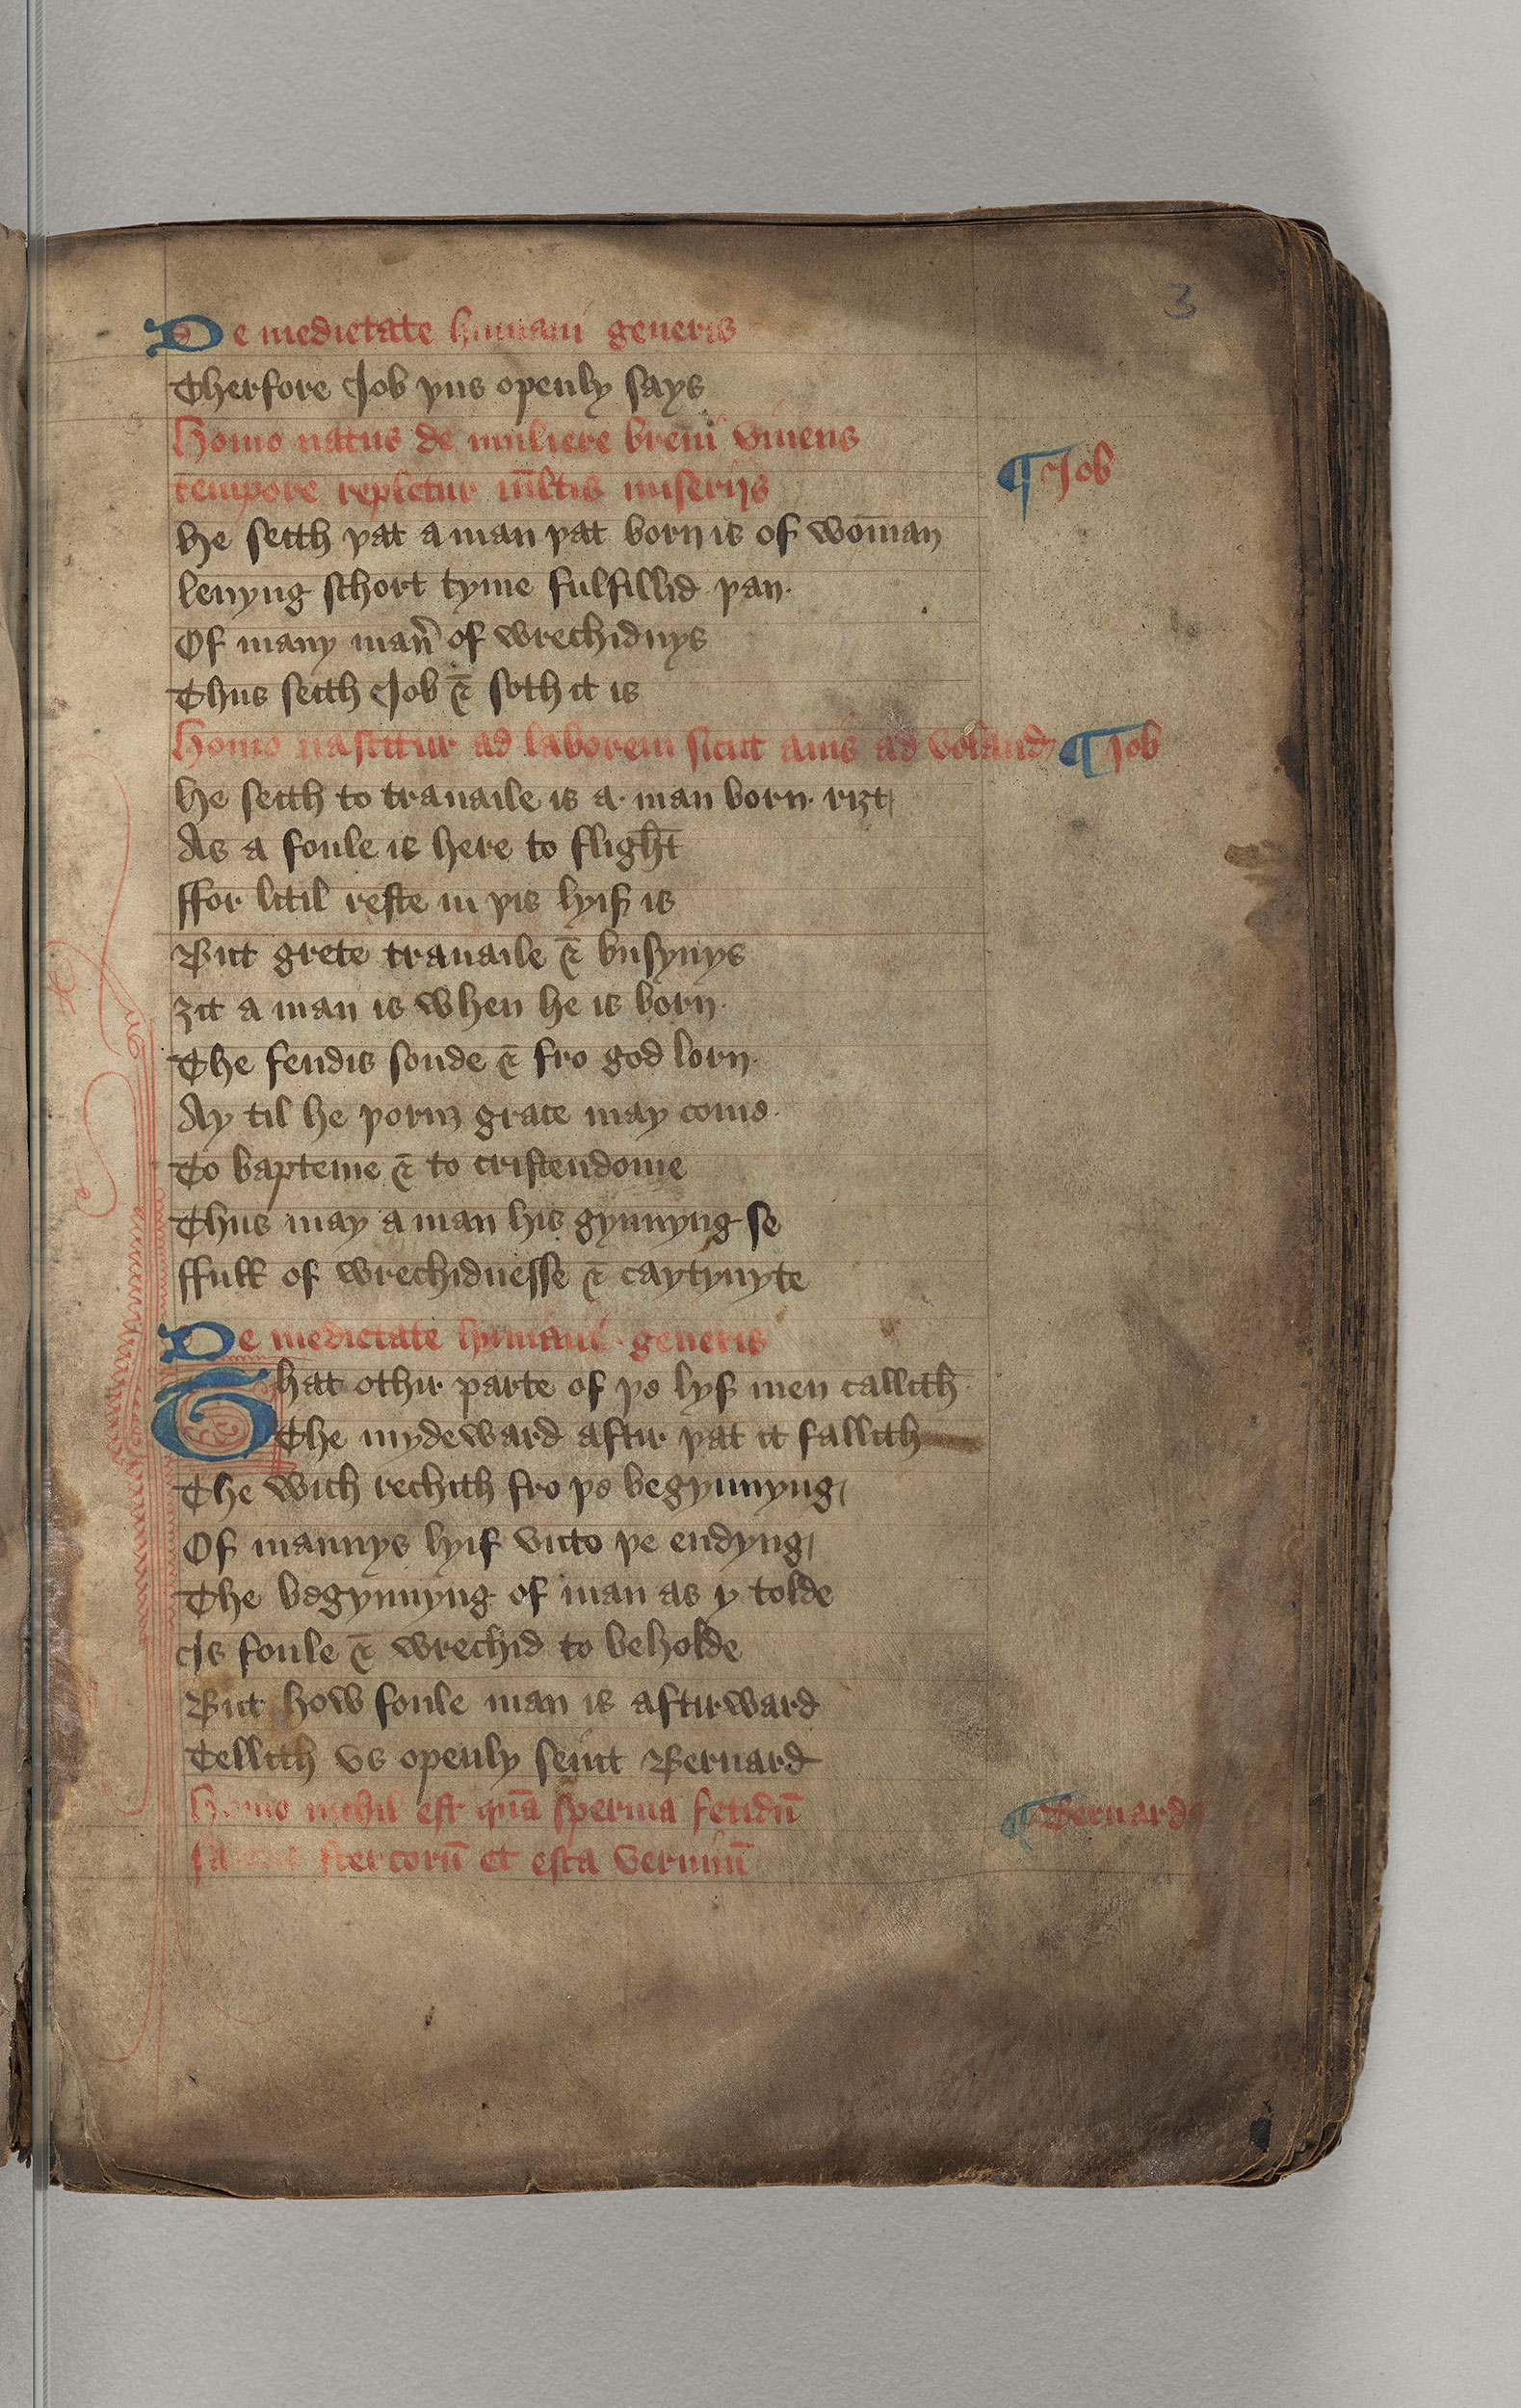 3
De medietate humani generis
Therfore Job þus openly says
Homo natus de muliere breui viuens
tempore repletur ml̄tis miserijs
¶ Job
he seith þat a man þat born is of woman
leuyng schort tyme fulfillid þan·
Of many man̄ of wrechidnys
Thus seith Job & soth it is
Homo nascitur ad laborem sicut auis ad voland ¶ Job
he seith to trauaile is a· man born· riȝt
As a foule is here to flight
ffor litil reste in þis lyif is
But grete trauaile & busynys
ȝit a man is when he is born·
The fendis sonde & fro god lorn·
Ay til he þoruȝ grace may come·
To bapteme & to cristendome
Thus may a man his gynnyng se
ffull of wrechidnesse & caytyuyte
De medietate humani· generis
That othir parte of þe lyf men callith·
The mydeward aftir þat it fallith
The wich rechith fro þe begynnyng
Of mannys lyif vnto þe endyng
The begynnyng of man as y tolde
Is foule & wrechid to beholde
But how foule man is aftirward
Tellith vs openly seint Bernard
Homo nichil est quā sperma fetidū
stercorū et esca vermiū
¶ Bernardꝰ